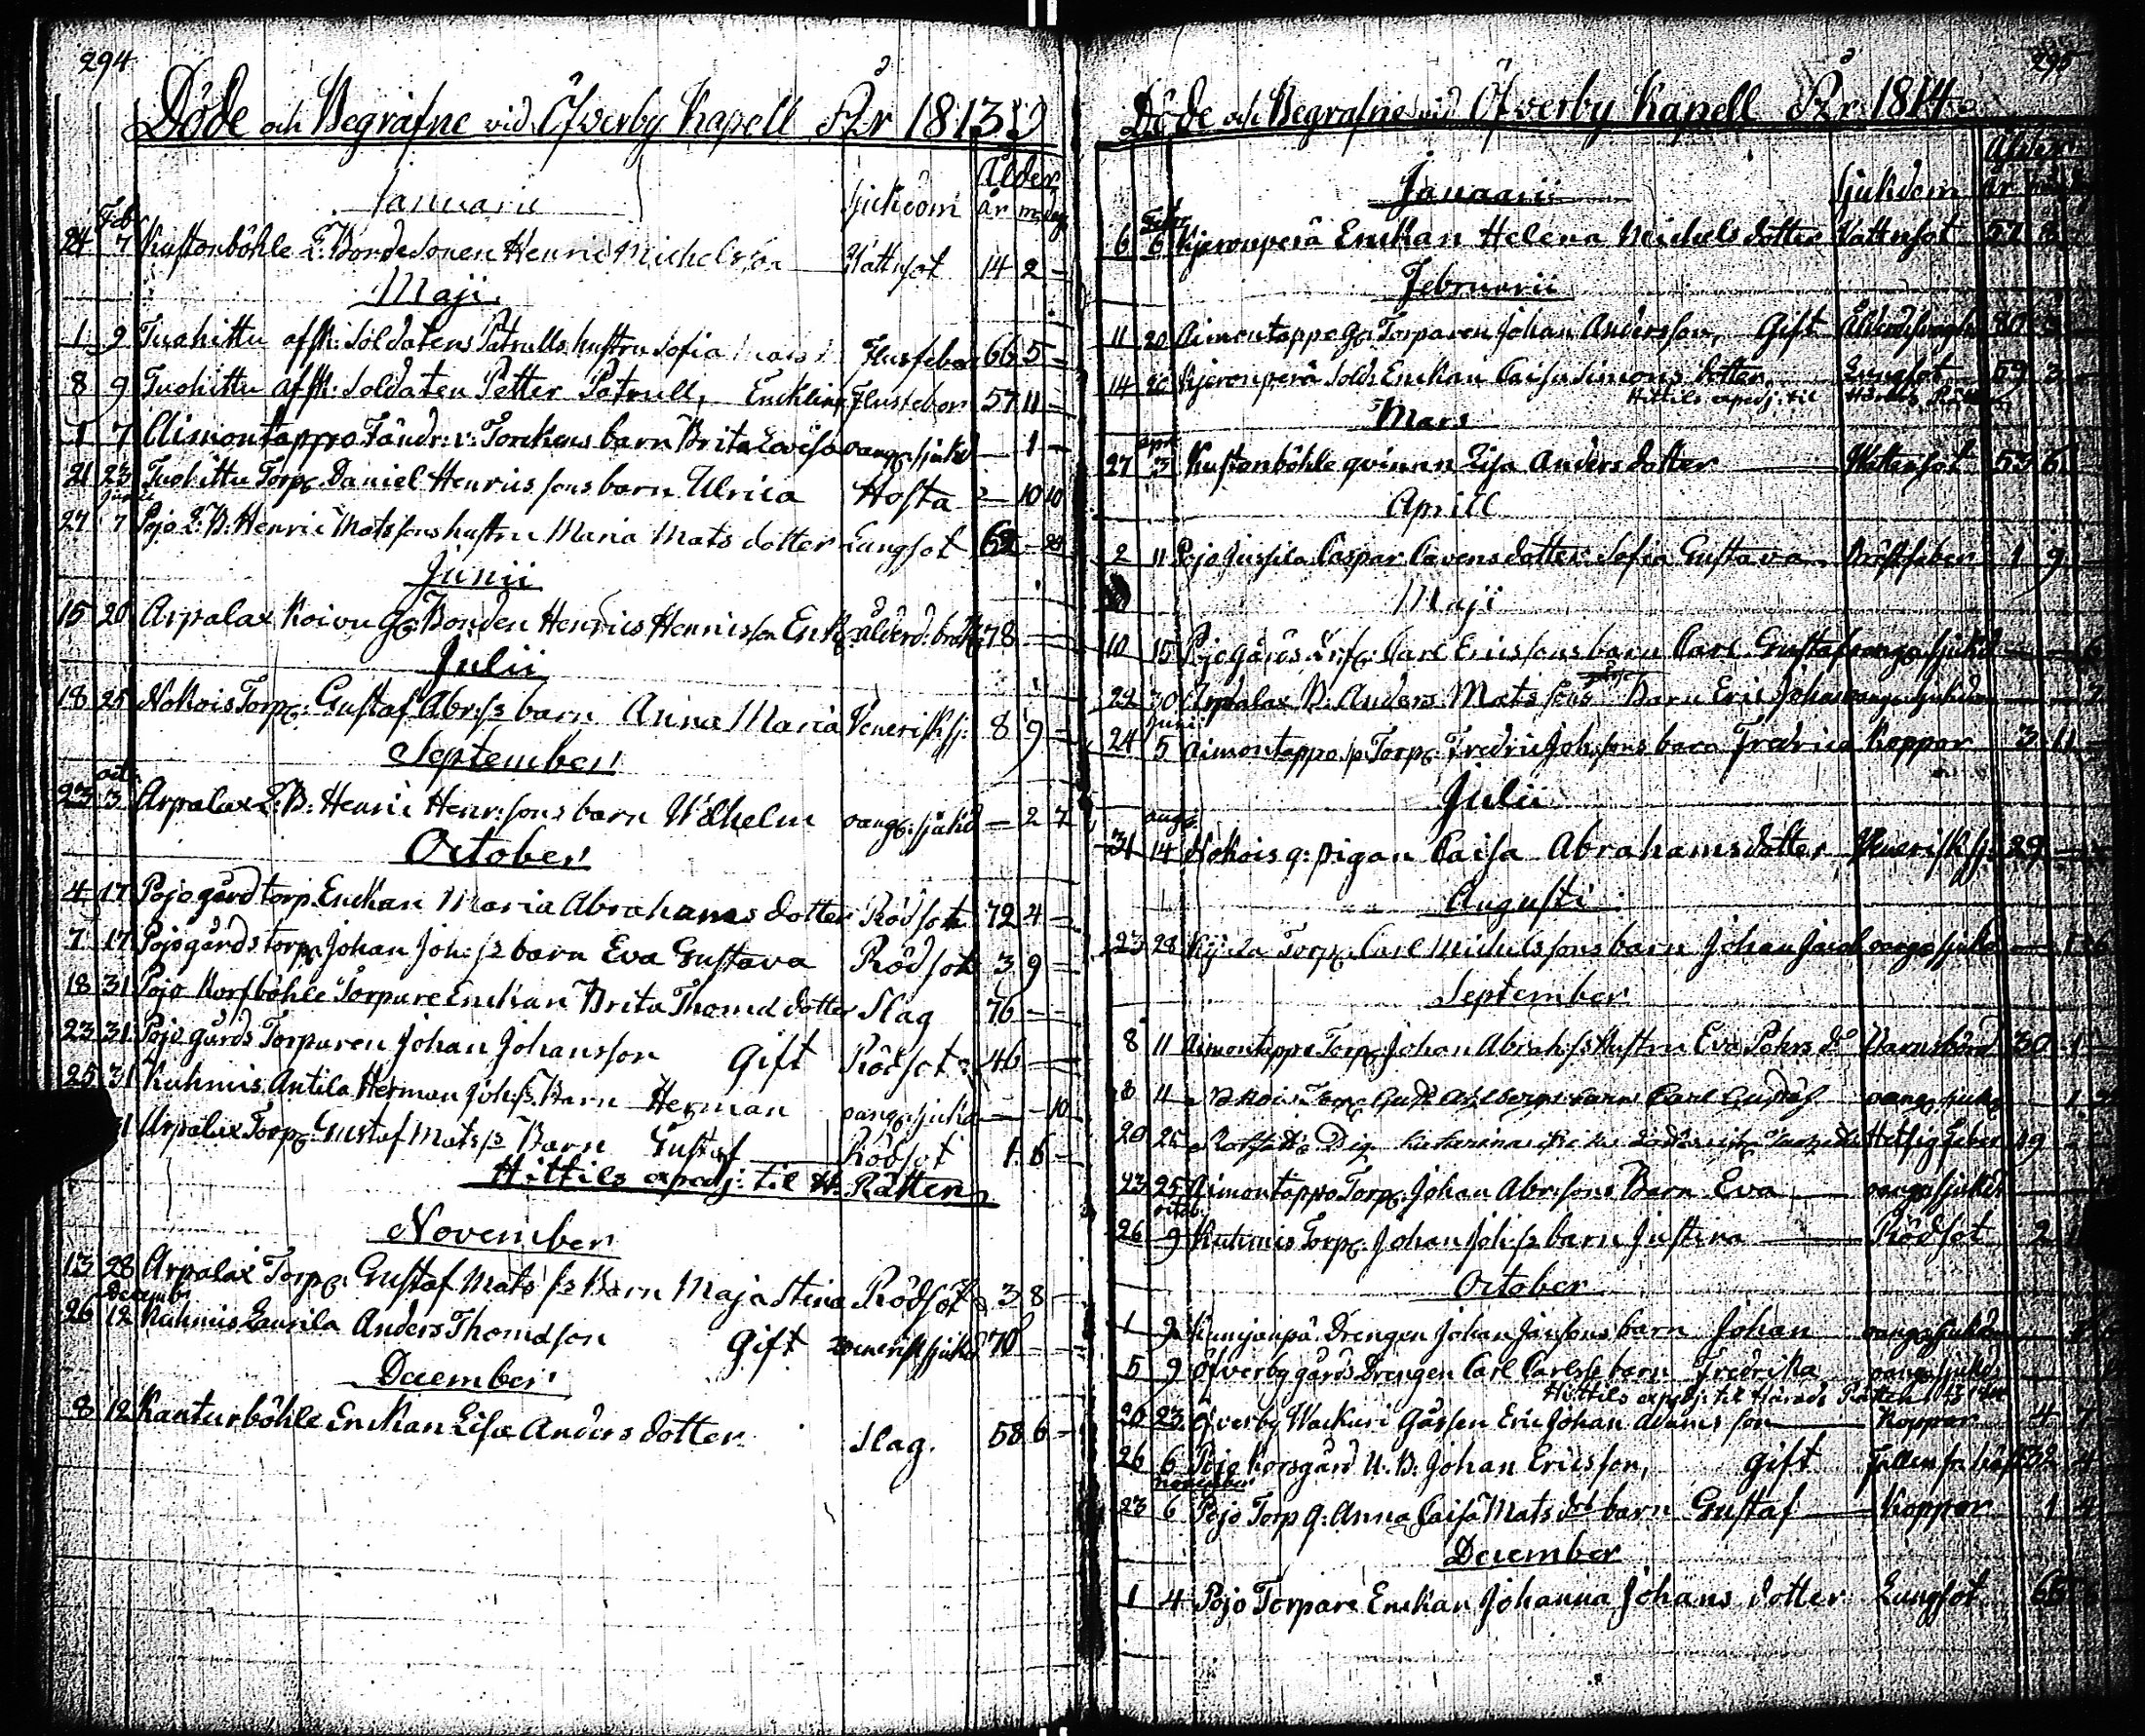 294
Döde och Begrafne vid Öfverby Kapell År 1813
Ålder
Januarii Sjukdom år m dag
Feb
24 7 Kustonböhle L: Bondesonen Henric Michelsson Vattusot 14 2 -
Maji
1 9 Tuohittu afsk: Soldatens Patrulls hustru Sofia Flussfeber 66 5 -
8 9 Tuohittu afsk: Soldaten Petter Patrull, Enkling Flussfeber 57 11 -
1 7 Aimontappo Fändr: v: Torckens barn Brita Lovisa oang: sjukd - 1 -
21 23 Tuohittu Torp: Daniel Henricssons barn Ulrica Hosta 2 10 10
Junii
27 7 Pojo L: B: Henric Matssons hustru Maria Mats dotter Lungsot 62 - 20
Junii
15 20 Arpalax Koivu G: Bonden Henrics Henricsson Enk: ålderd: bräk: 78 -
Julii
18 25 Nokois Torp: Gustaf Abr: ss barn Anna Maria Venerisk sj: 8 9 -
September
octr
23 3 Arpalax L: B: Henric Henr: sons barn Wilhelm oang: sjukd - 2 7
October
4 17 Pojo gård torp Enckan Maria Abrahams dotter Rödsot 72 4 -
7 17 Pojo gårds torp: Johan Joh: ss barn Eva Gustava Rödsot 3 9 -
18 31 Pojo Korsböhle Torpare Enckan Brita Thomd dotter Slag 76 - -
23 31 Pojo gårds Torparen Johan Johansson Gift Rödsot 46 -
25 31 Kuhmis Antila Herman Joh: ss. Barn Herman oang: sjukd - - 10
31 Arpalax Torp: Gustaf Mats ss Barn Gustaf Rödsot 1 6 -
Hittils exped: til H. Rätten
November
13 28 Arpalax Torp: Gustaf Mats ss Barn Maja Stina Rödsot 3 8 -
Decembr
26 12 Kuhmis Laurila Anders Thomdson Gift venerisk sjukd 70 - -
December
8 12 Kanturböhle Enckan Lisa Anders dotter Slag. 58 6 -
295
Döde och Begrafne vid Öfverby Kapell År 1814
Ålder
Januarii Sjukdom år
6 6 Kjeronperä Enckan Helena Michels dotter Vattusot 57 8
Februarii
11 20 Aimontappo G: Torparen Johan Andersson, Gift Ålderd: 80 3
14 20 Kjeronperä Sold: Enckan Caisa Simons dotter Lungsot 69 3
Hittils exped: til Härads Rätten
Mars
april
27 3 Kustonböhle qvinnan Lisa Anders dotter Vattusot 53 6
Aprill
2 11 Pojo Jussila Caspar Cavens dotter Sofia Gustava Bröstfeber 1 9
Maji
10 15 Pojo gårds Carl Ericssons barn Carl Gustaf oang: sjukd - - 6
22 30 Arpalax B: Anders Mats sons Barn Eric Johan oang: sjukdom
Junii
24 5 Aimontappo Torp: Fredric Joh: sons barn Fredrica Koppor 3 11 -
Julii
aug:
31 14 Nokois g: pigan Caisa Abrahams dotter Venerisk sj: 29
Augusti
23 28 Torp: Carl Michelssons barn Johan Jacob oang: sjukd
September
8 11 Aimontappo Torp: Johan Abrah: ss Hustru Eva Pehrs dr Barnsbörd 30 1
8 11 Nokois Torp: barn Carl Gustaf oang: sjukd 1
20 25 Hetsig Feber 19
23 25 Aimontappo Torp: Johan Abr: sons Barn Eva oang: sjukd
octob:
26 9 Kuhmis Torp: Johan Joh: ss barn Justina Rödsot 2
October
1 9 Drengen Johan Jansons barn Johan oang: sjukdom
5 9 Öfverby gårds Drengen Carl Carlsss barn Fredrika oang: sjukd
Hittils exped: til Härads Rätten
20 23 Öfverby Wackuri Gåssen Eric Johan Adamsson Koppor 4 7
26 6 Pojo Korsgård U. B: Johan Ericsson, Gift 32 4
november
23 6 Pojo Torp q: Anna Caisa Mats dr barn Gustaf Koppor 1 4
December
1 4 Pojo Torpare Enckan Johanna Johans dotter Lungsot 66